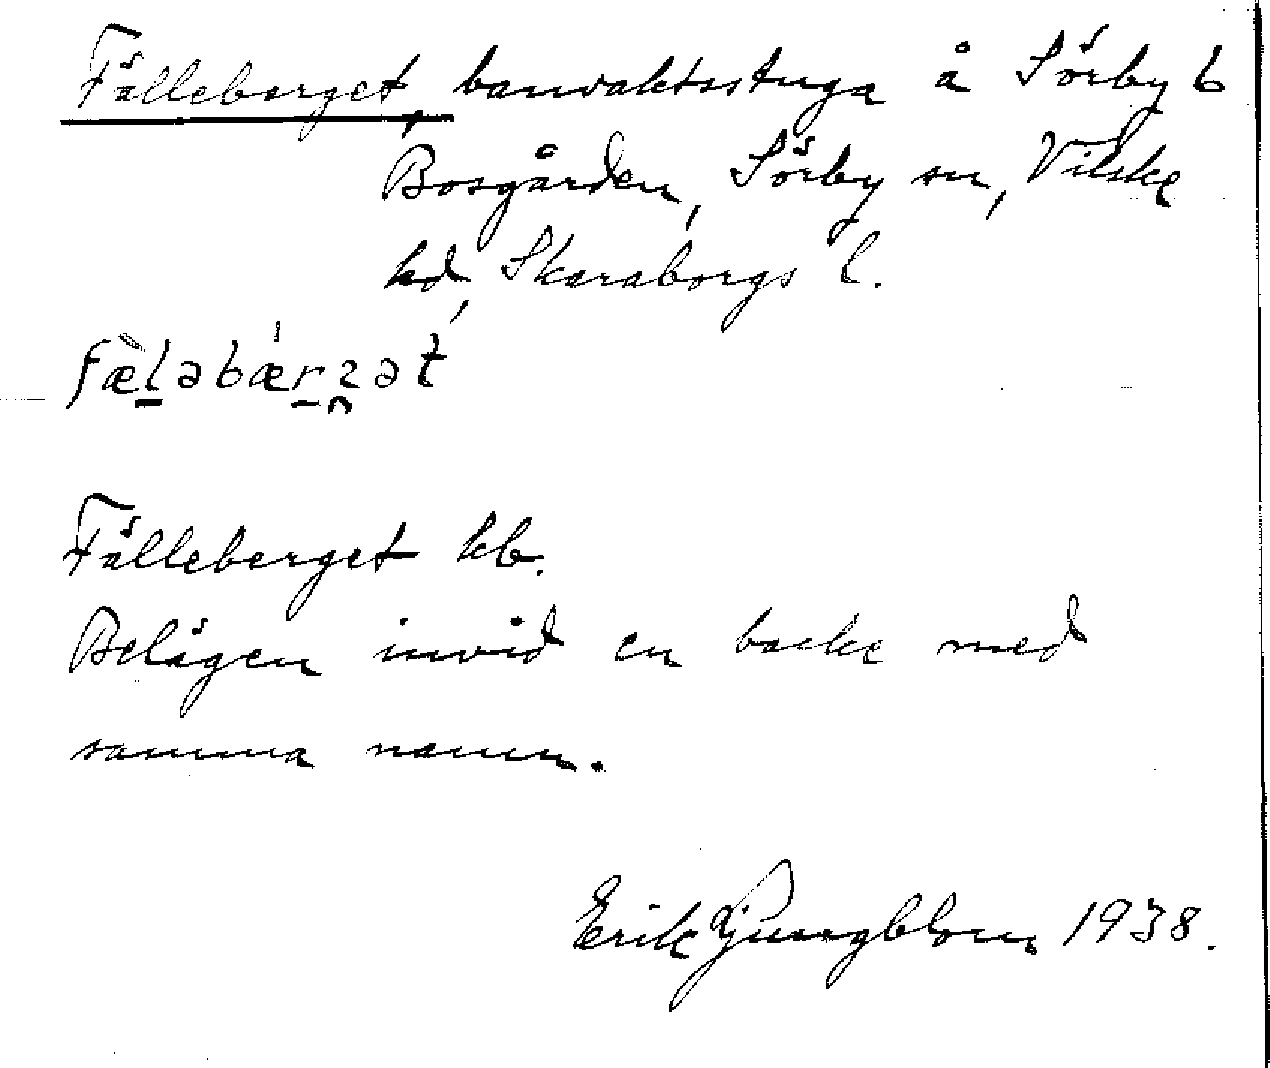 Fälleberget, banvaktsstuga å Sörby 6
Bosgården, Sörby sn, Vilske
hd, Skaraborgs l.
fæ̀l̠əbǽr̠ꝛət
Fälleberget kb.
Belägen invid en backe med
samma namn.
Erik Ljungblom 1938.